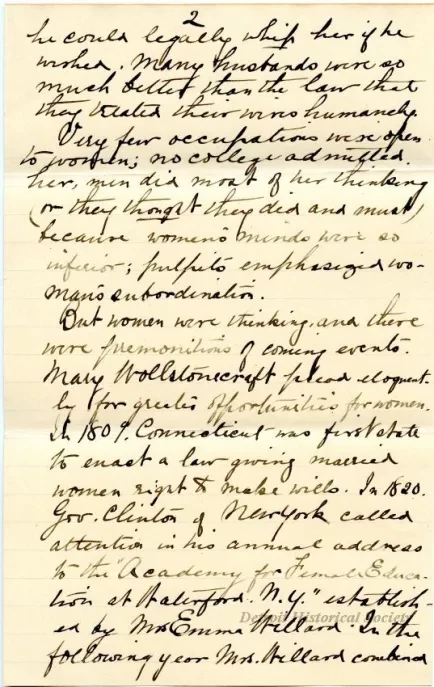 2
he could legally whip her if he
wished. Many husbands were so
much better than the law that
they treated their wives humanely.
Very few occupations were open
to women; no college admitted
her, men did most of her thinking
(or they thought they did and must)
because women's minds were so
inferior; pulpits emphasized wo-
man's subordination.
But women were thinking, and there
were premonitions of coming events.
Mary Wollstonecraft plead eloquent-
ly for greater opportunities for women.
In 1809. Connecticut was first state
to enact a law giving married
women right to make wills. In 1820.
Gov. Clinton of New York called
attention in his annual address
to the "Academy for Female Educa-
tion at Waterford. N.Y." establish-
ed by Mrs Emma Willard. In the
Detroit Historical Society
following year Mrs. Willard combined